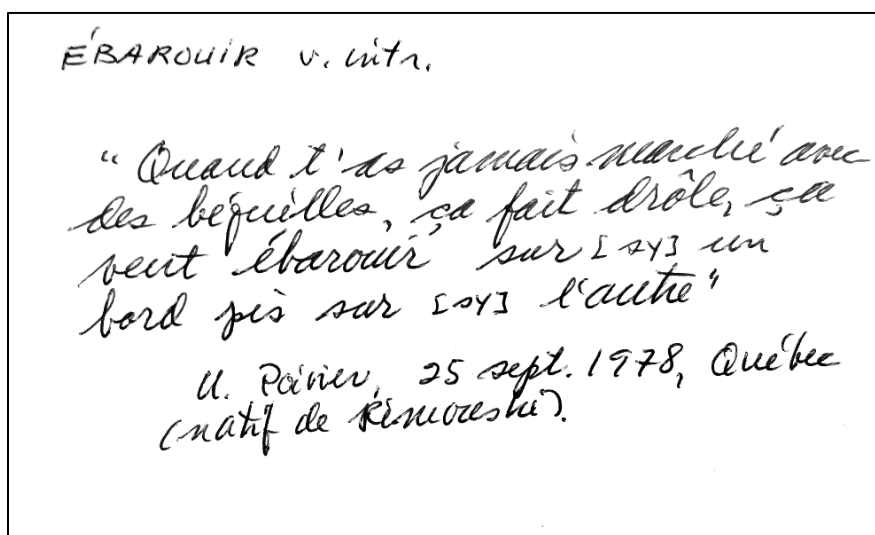 ÉBAROUIR v. intr.
“Quand t'as jamais marché avec
des béquilles, ça fait drôle, ça
veut ébarouir sur [sy] un
bord pis sur [sy] l'autre”
U. Poirier, 25 sept. 1978, Québec
(natif de Rimouski).